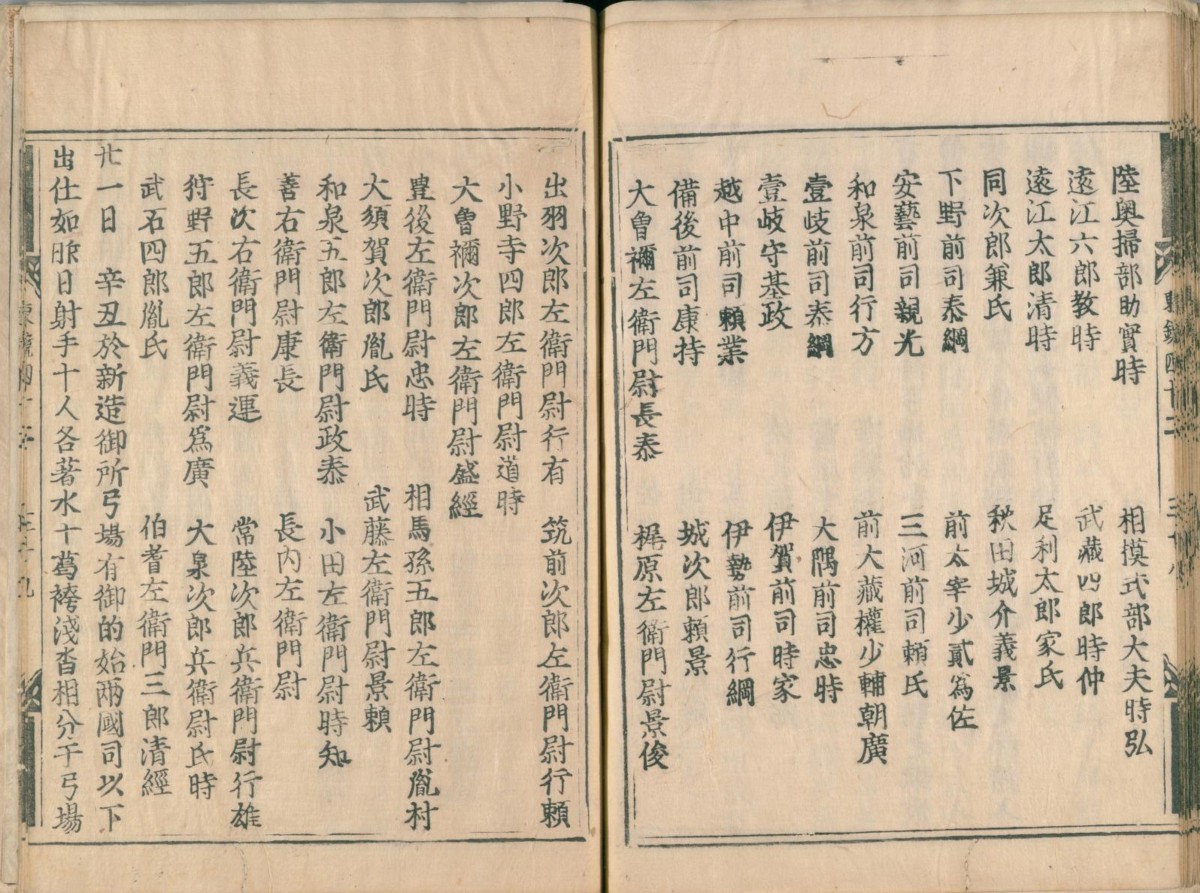 陸奥掃部助實時　相摸式部大夫時弘
遠江六郎教時　武藏四郎時仲
遠江太郎清時　足利太郎家氏
同次郎兼氏　秋田城介義景
下野前司泰綱　前太宰少貳爲佐
安藝前司親光　三河前司頼氏
和泉前司行方　前大藏權少輔朝廣
壹岐前司泰綱　大隅前司忠時
壹岐守基政　伊賀前司時家
越中前司頼業　伊勢前司行綱
備後前司康持　城次郎頼景
大曽禰左衛門尉長泰　梶原左衛門尉景俊
出羽次郎左衛門尉行有　筑前次郎左衛門尉行頼
小野寺四郎左衛門尉道時
大曽禰次郎左衛門尉盛經
豊後左衛門尉忠時　相馬孫五郎左衛門尉胤村
大須賀次郎胤氏　武藤左衛門尉景頼
和泉五郎左衛門尉政泰　小田左衛門尉時知
善右衛門尉康長　長内左衛門尉
長次右衛門尉義運　常陸次郎兵衛門尉行雄
狩野五郎左衛門尉爲廣　大泉次郎兵衛尉氏時
武石四郎胤氏　伯耆左衛門三郎清經
廿一日　辛丑於新造御所弓場有御的始兩國司以下
出仕如昨日射手十人各著水干葛袴淺沓相分干弓場